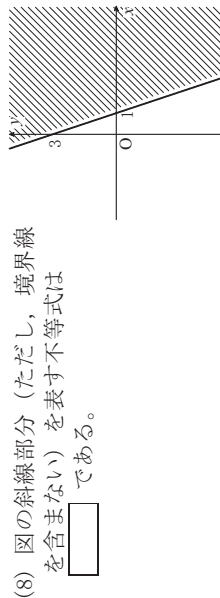 (8) 図の斜線部分（ただし，境界線
を含まない）を表す不等式は
である。
y
3
O
1
x